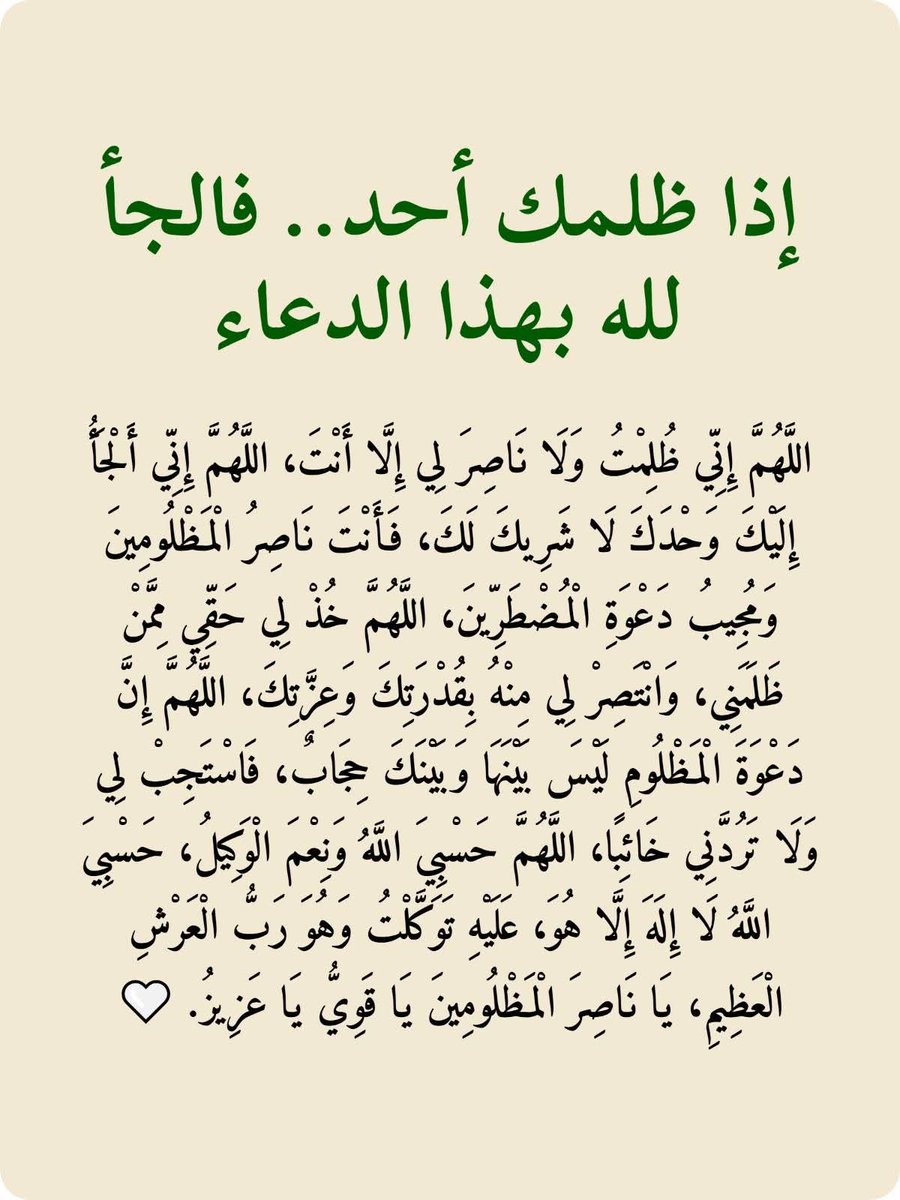 إذا ظلمك أحد.. فالجأ
لله بهذا الدعاء
اللَّهُمَّ إِنِّي ظُلِمْتُ وَلَا نَاصِرَ لِي إِلَّا أَنْتَ، اللَّهُمَّ إِنِّي أَلْجَأُ
إِلَيْكَ وَحْدَكَ لَا شَرِيكَ لَكَ، فَأَنْتَ نَاصِرُ الْمَظْلُومِينَ
وَمُجِيبُ دَعْوَةِ الْمُضْطَرِّينَ، اللَّهُمَّ خُذْ لِي حَقِّي مِمَّنْ
ظَلَمَنِي، وَانْتَصِرْ لِي مِنْهُ بِقُدْرَتِكَ وَعِزَّتِكَ، اللَّهُمَّ إِنَّ
دَعْوَةَ الْمَظْلُومِ لَيْسَ بَيْنَهَا وَبَيْنَكَ حِجَابٌ، فَاسْتَجِبْ لِي
وَلَا تَرُدَّنِي خَائِبًا، اللَّهُمَّ حَسْبِيَ اللَّهُ وَنِعْمَ الْوَكِيلُ، حَسْبِيَ
اللَّهُ لَا إِلَهَ إِلَّا هُوَ، عَلَيْهِ تَوَكَّلْتُ وَهُوَ رَبُّ الْعَرْشِ
الْعَظِيمِ، يَا نَاصِرَ الْمَظْلُومِينَ يَا قَوِيُّ يَا عَزِيزُ. 🤍